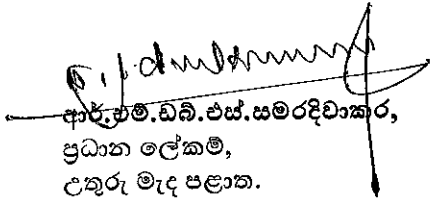 ආර්.එම්.ඩබ්.එස්.සමරදිවාකර,
ප්‍රධාන ලේකම්,
උතුරු මැද පළාත.